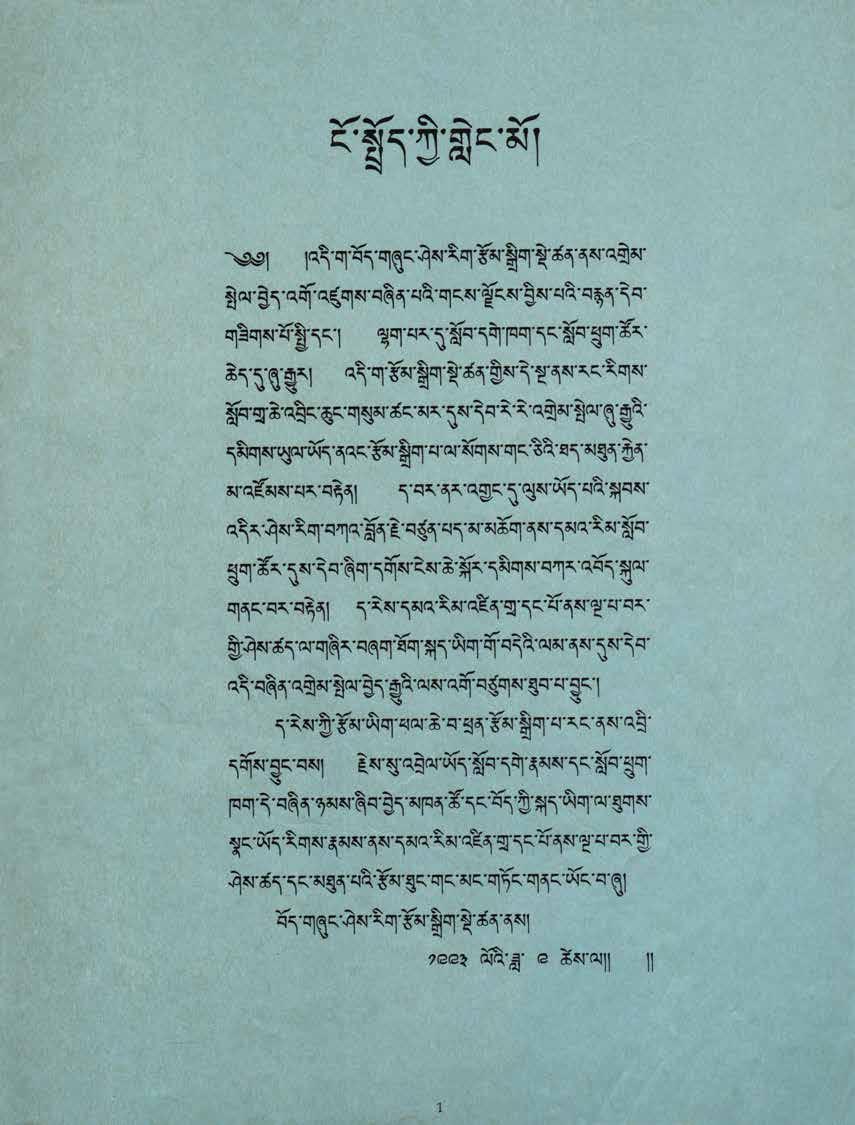 ངོ་སྤྲོད་ཀྱི་གླེང་མོ།
༄༅།   །འདི་ག་བོད་གཞུང་ཤེས་རིག་རྩོམ་སྒྲིག་སྡེ་ཚན་ནས་འགྲེམ་
སྤེལ་བྱེད་འགོ་འཛུགས་བཞིན་པའི་གངས་ལྗོངས་བྱིས་པའི་བརྙན་དེབ་
གཟིགས་པོ་སྤྱི་དང་།   ལྷག་པར་དུ་སློབ་དགེ་ཁག་དང་སློབ་ཕྲུག་ཚོར་
ཆེད་དུ་ཞུ་རྒྱུར།   འདི་ག་རྩོམ་སྒྲིག་སྡེ་ཚན་གྱིས་དེ་སྔ་ནས་རང་རིགས་
སློབ་གྲྭ་ཆེ་འབྲིང་ཆུང་གསུམ་ཚང་མར་དུས་དེབ་རེ་རེ་འགྲེམ་སྤེལ་ཞུ་རྒྱུའི་
དམིགས་ཡུལ་ཡོད་ནའང་རྩོམ་སྒྲིག་པ་ལ་སོགས་གང་ཅིའི་ཐད་མཐུན་རྐྱེན་
མ་འཛོམས་པར་བརྟེན།   ད་བར་ནར་འགྱང་དུ་ལུས་ཡོད་པའི་སྐབས་
འདིར་ཤེས་རིག་བཀའ་བློན་རྗེ་བཙུན་པད་མ་མཆོག་ནས་དམའ་རིམ་སློབ་
ཕྲུག་ཚོར་དུས་དེབ་ཞིག་དགོས་ངེས་ཆེ་སྐོར་དམིགས་བཀར་འབོད་སྐུལ་
གནང་བར་བརྟེན།   ད་རེས་དམའ་རིམ་འཛིན་གྲྭ་དང་པོ་ནས་ལྔ་པ་བར་
གྱི་ཤེས་ཚད་ལ་གཞིར་བཞག་ཐོག་སྐད་ཡིག་གོ་བདེའི་ལམ་ནས་དུས་དེབ་
འདི་བཞིན་འགྲེམ་སྤེལ་བྱེད་རྒྱུའི་ལས་འགོ་བཙུགས་ཐུབ་པ་བྱུང་།
ད་རེས་ཀྱི་རྩོམ་ཡིག་ཕལ་ཆེ་བ་ཕྲན་རྩོམ་སྒྲིག་པ་རང་ནས་འབྲི་
དགོས་བྱུང་བས།   རྗེས་སུ་འབྲེལ་ཡོད་སློབ་དགེ་རྣམས་དང་སློབ་ཕྲུག་
ཁག་དེ་བཞིན་ཉམས་ཞིབ་བྱེད་མཁན་ཚོ་དང་བོད་ཀྱི་སྐད་ཡིག་ལ་ཐུགས་
སྣང་ཡོད་རིགས་རྣམས་ནས་དམའ་རིམ་འཛིན་གྲྭ་དང་པོ་ནས་ལྔ་པ་བར་གྱི་
ཤེས་ཚད་དང་མཐུན་པའི་རྩོམ་ཐུང་གང་མང་གཏོང་གནང་ཡོང་བ་ཞུ།
བོད་གཞུང་ཤེས་རིག་རྩོམ་སྒྲིག་སྡེ་ཚན་ནས།
༡༩༩༣ ལོའི་ཟླ་ ༩ ཚེས་ལ།།   །།
1